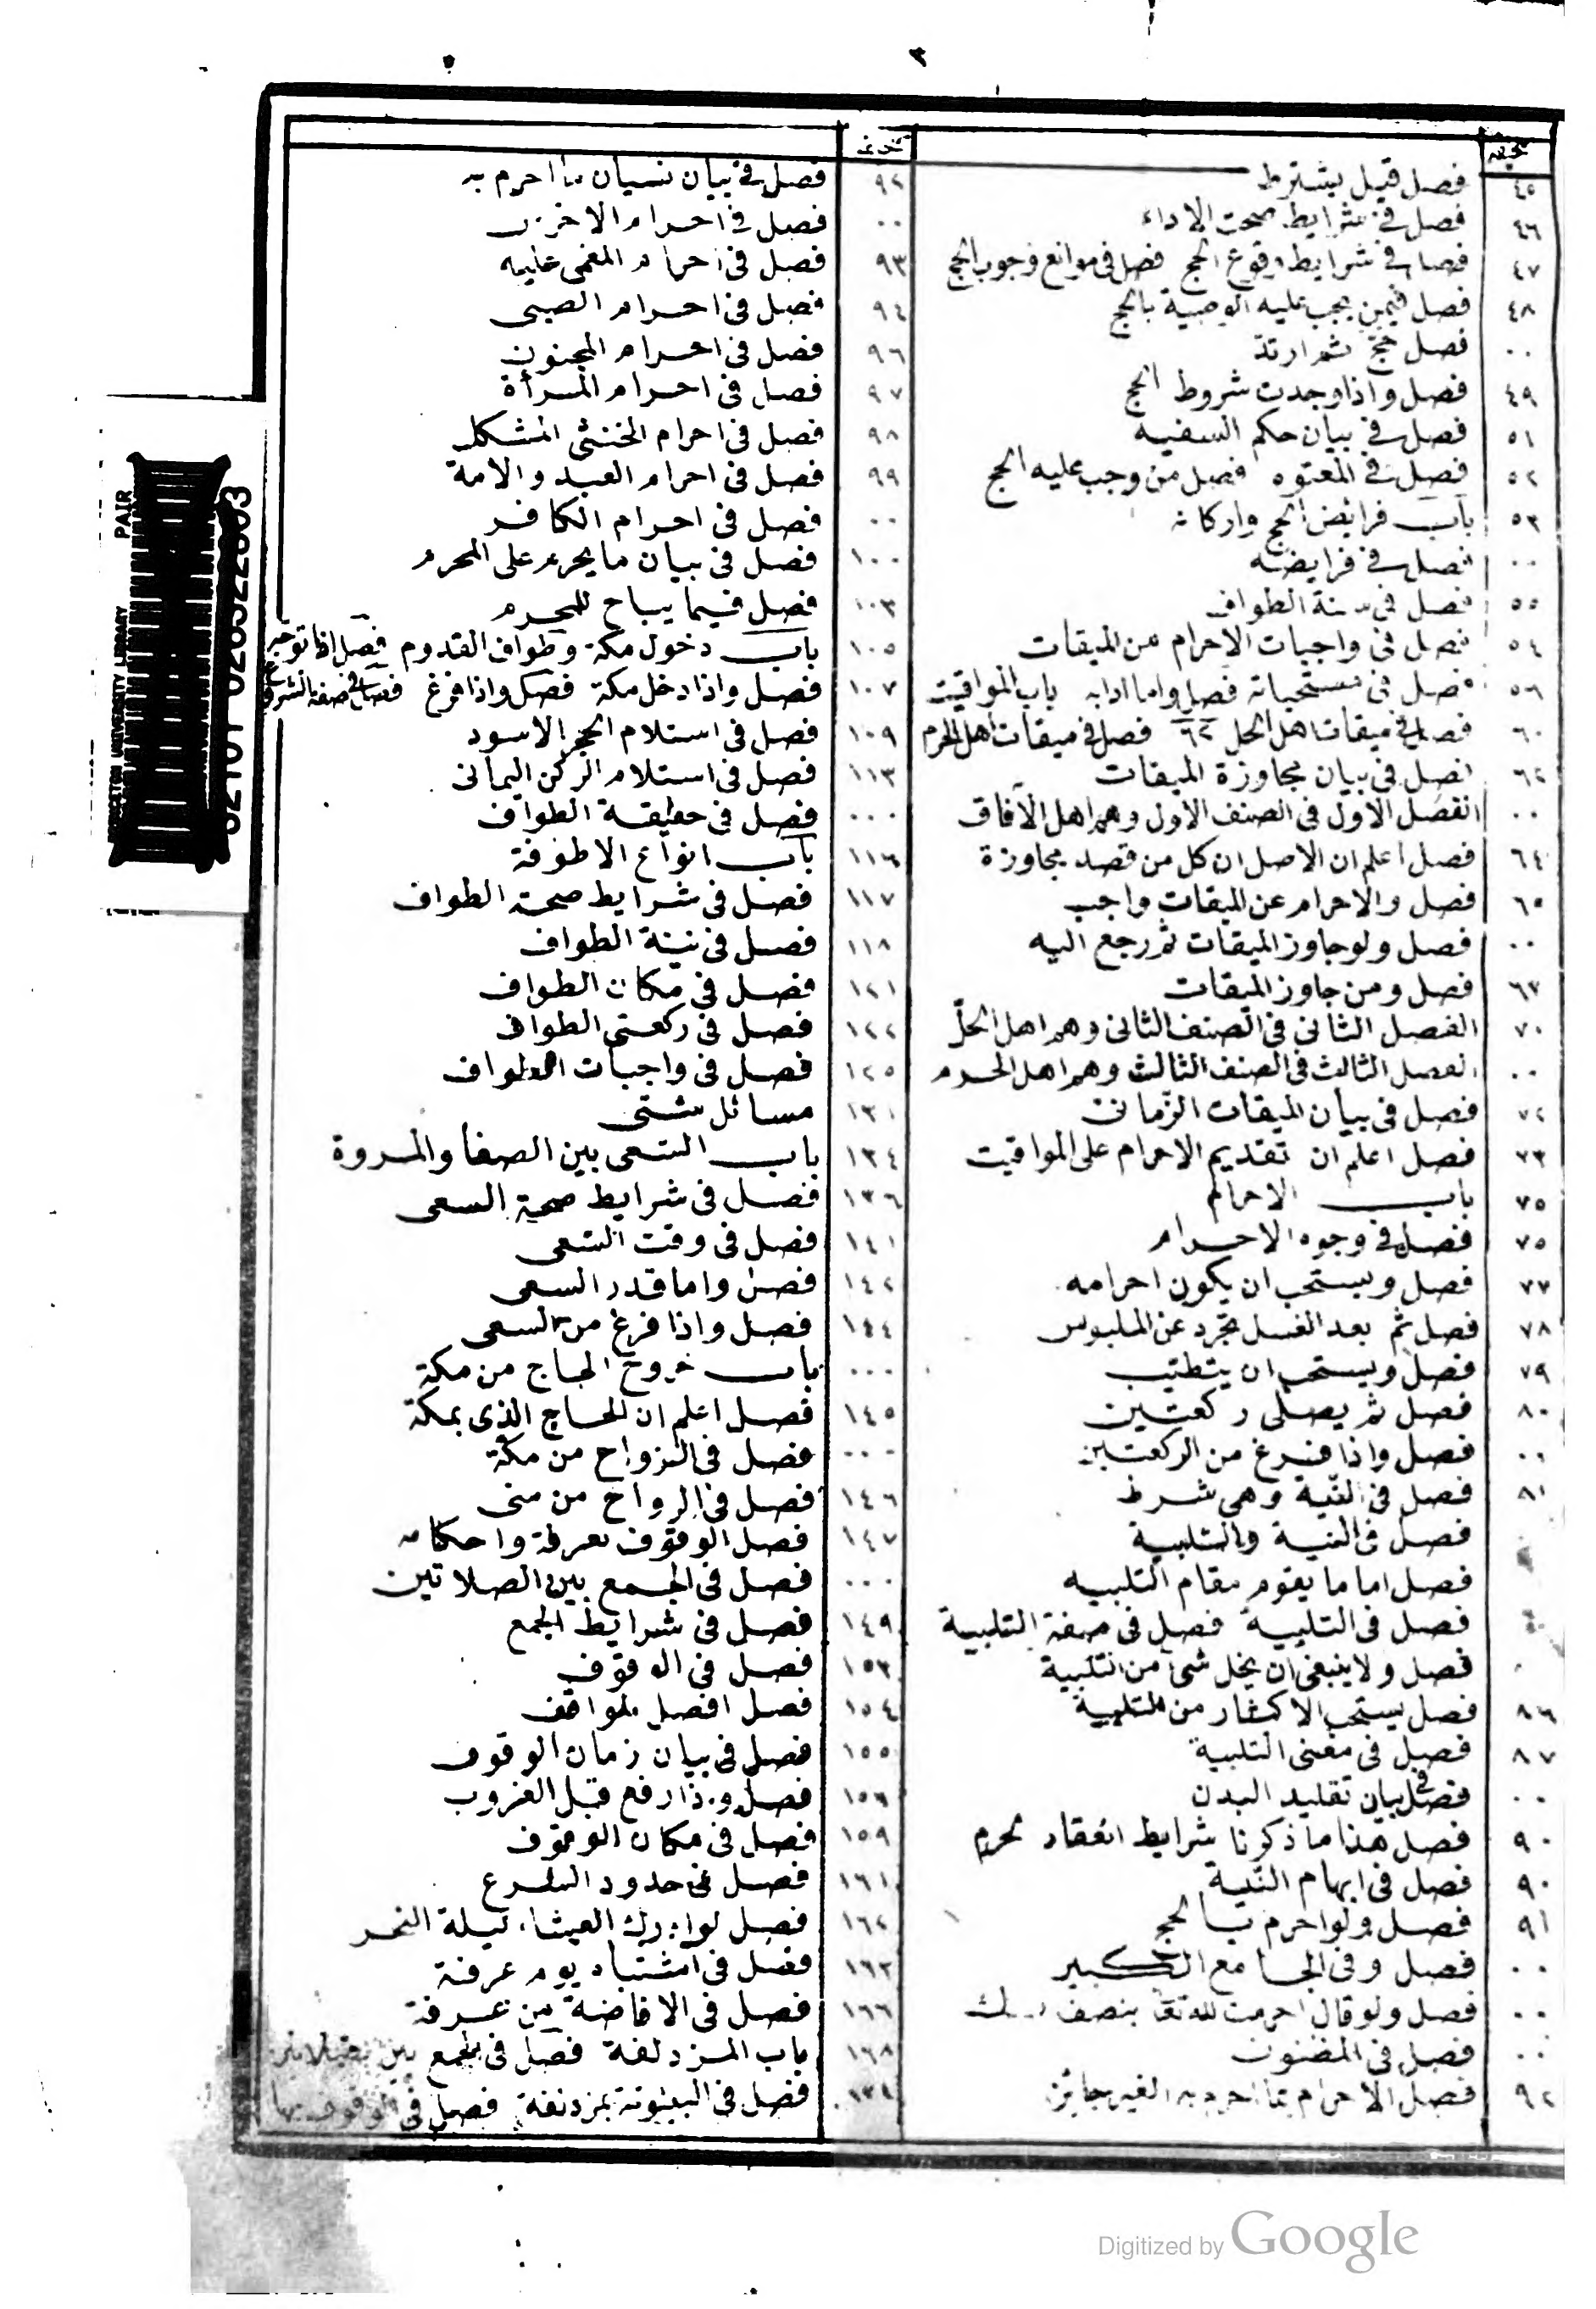 ٣
صحيفه
٤٥ فصل قيل يشترط
٤٦ فصل في شرايط صحت الاداء
٤٧ فصل في شرايط وقوع الحج فصل في موانع وجوب الحج
٤٨ فصل فيمن يجب عليه الوصية بالحج
٠٠ فصل حج ثم ارتد
٤٩ فصل واذا وجدت شروط الحج
٥١ فصل في بيان حكم السفيه
٥٢ فصل في المعتوه فصل من وجب عليه الحج
٥٣ باب فرائض الحج واركانه
٠٠ فصل في فرايضه
٥٥ فصل في سنة الطواف
٥٤ فصل في واجبات الاحرام من الميقات
٥٦ فصل في مستحباته فصل واما ادابه باب المواقيت
٦٠ فصل في ميقات اهل الحل ٦٢ فصل في ميقات اهل الحرم
٦٢ فصل في بيان مجاوزة الميقات
٠٠ الفصل الاول في الصنف الاول وهم اهل الآفاق
٦٤ فصل اعلم ان الاصل ان كل من قصد مجاوزة
٦٥ فصل والاحرام عن الميقات واجب
٠٠ فصل ولو جاوز الميقات ثم رجع اليه
٦٧ فصل ومن جاوز الميقات
٧٠ الفصل الثاني في الصنف الثاني وهم اهل الحلّ
٠٠ الفصل الثالث في الصنف الثالث وهم اهل الحرم
٧٢ فصل في بيان الميقات الزّماني
٧٣ فصل اعلم ان تقديم الاحرام على المواقيت
٧٥ باب الاحرام
٧٥ فصل في وجوه الاحرام
٧٧ فصل ويستحب ان يكون احرامه
٧٨ فصل ثم بعد الغسل تجرّد عن الملبوس
٧٩ فصل ويستحب ان يتطيب
٨٠ فصل ثم يصلي ركعتين
٠٠ فصل واذا فرغ من الركعتين
٨١ فصل في النيّة وهي شرط
فصل في النية والتلبية
فصل اما ما يقوم مقام التلبيه
فصل في التلبية فصل في صفة التلبية
فصل ولا ينبغي ان يخل شئ من التلبية
٨٦ فصل يستحب الاكثار من التلبية
٨٧ فصل في معنى التلبية
٠٠ فصل في بيان تقليد البدن
٩٠ فصل هذا ما ذكرنا شرايط انعقاد محرم
٩٠ فصل في ابهام النّية
٩١ فصل ولو احرم بالحج
٠٠ فصل وفي الجامع الكبير
٠٠ فصل ولو قال احرمت لله تعالى بنصف
٠٠ فصل في المظنون
٩٢ فصل الاحرام بما احرم به الغير جائز
صحيفه
٩٢ فصل في بيان نسيان ما احرم به
٠٠ فصل في احرام الاخرس
٩٣ فصل في احرام المغمى عليه
٩٤ فصل في احرام الصبى
٩٦ فصل في احرام المجنون
٩٧ فصل في احرام المرأة
٩٨ فصل في احرام الخنثى المشكل
٩٩ فصل في احرام العبد والامة
٠٠ فصل في احرام الكافر
١٠٠ فصل في بيان ما يحرم على المحرم
١٠٣ فصل فيما يباح للمحرم
١٠٥ باب دخول مكة وطواف القدوم فصل اذا توجه
١٠٧ فصل واذا دخل مكة فصل واذا فرغ فصل في صفة الشروع
١٠٩ فصل في استلام الحجر الاسود
١١٣ فصل في استلام الركن اليماني
٠٠٠ فصل في حقيقة الطواف
١١٦ باب انواع الاطوفة
١١٧ فصل في شرايط صحة الطواف
١١٨ فصل في نية الطواف
١٢١ فصل في مكان الطواف
١٢٢ فصل في ركعتى الطواف
١٢٥ فصل في واجبات الطواف
١٣١ مسائل شتى
١٣٤ باب السّعى بين الصفا والمروة
١٣٦ فصل في شرايط صحة السعى
١٤١ فصل في وقت السّعى
١٤٢ فصل واما قدر السعى
١٤٤ فصل واذا فرغ من السعى
٠٠٠ باب خروج الحاج من مكة
١٤٥ فصل اعلم ان الحاج الذى بمكة
٠٠٠ فصل في الرواح من مكة
١٤٦ فصل في الرواح من منى
١٤٧ فصل الوقوف بعرفة واحكامه
٠٠٠ فصل في الجمع بين الصلاتين
١٤٩ فصل في شرايط الجمع
١٥٣ فصل في الوقوف
١٥٤ فصل افضل المواقف
١٥٥ فصل في بيان زمان الوقوف
١٥٦ فصل واذا رفع قبل الغروب
١٥٩ فصل في مكان الوقوف
١٦١ فصل في حدود الشرع
١٦٢ فصل لو ادرك العشاء ليلة النحر
١٦٣ فصل في اشتباه يوم عرفة
١٦٦ فصل في الافاضة من عرفة
١٦٨ باب المزدلفة فصل في الجمع بين
١٣٤ فصل في البيتوتة بمزدلفة فصل في الوقوف بها
PRINCETON UNIVERSITY LIBRARY
PAIR
Digitized by Google